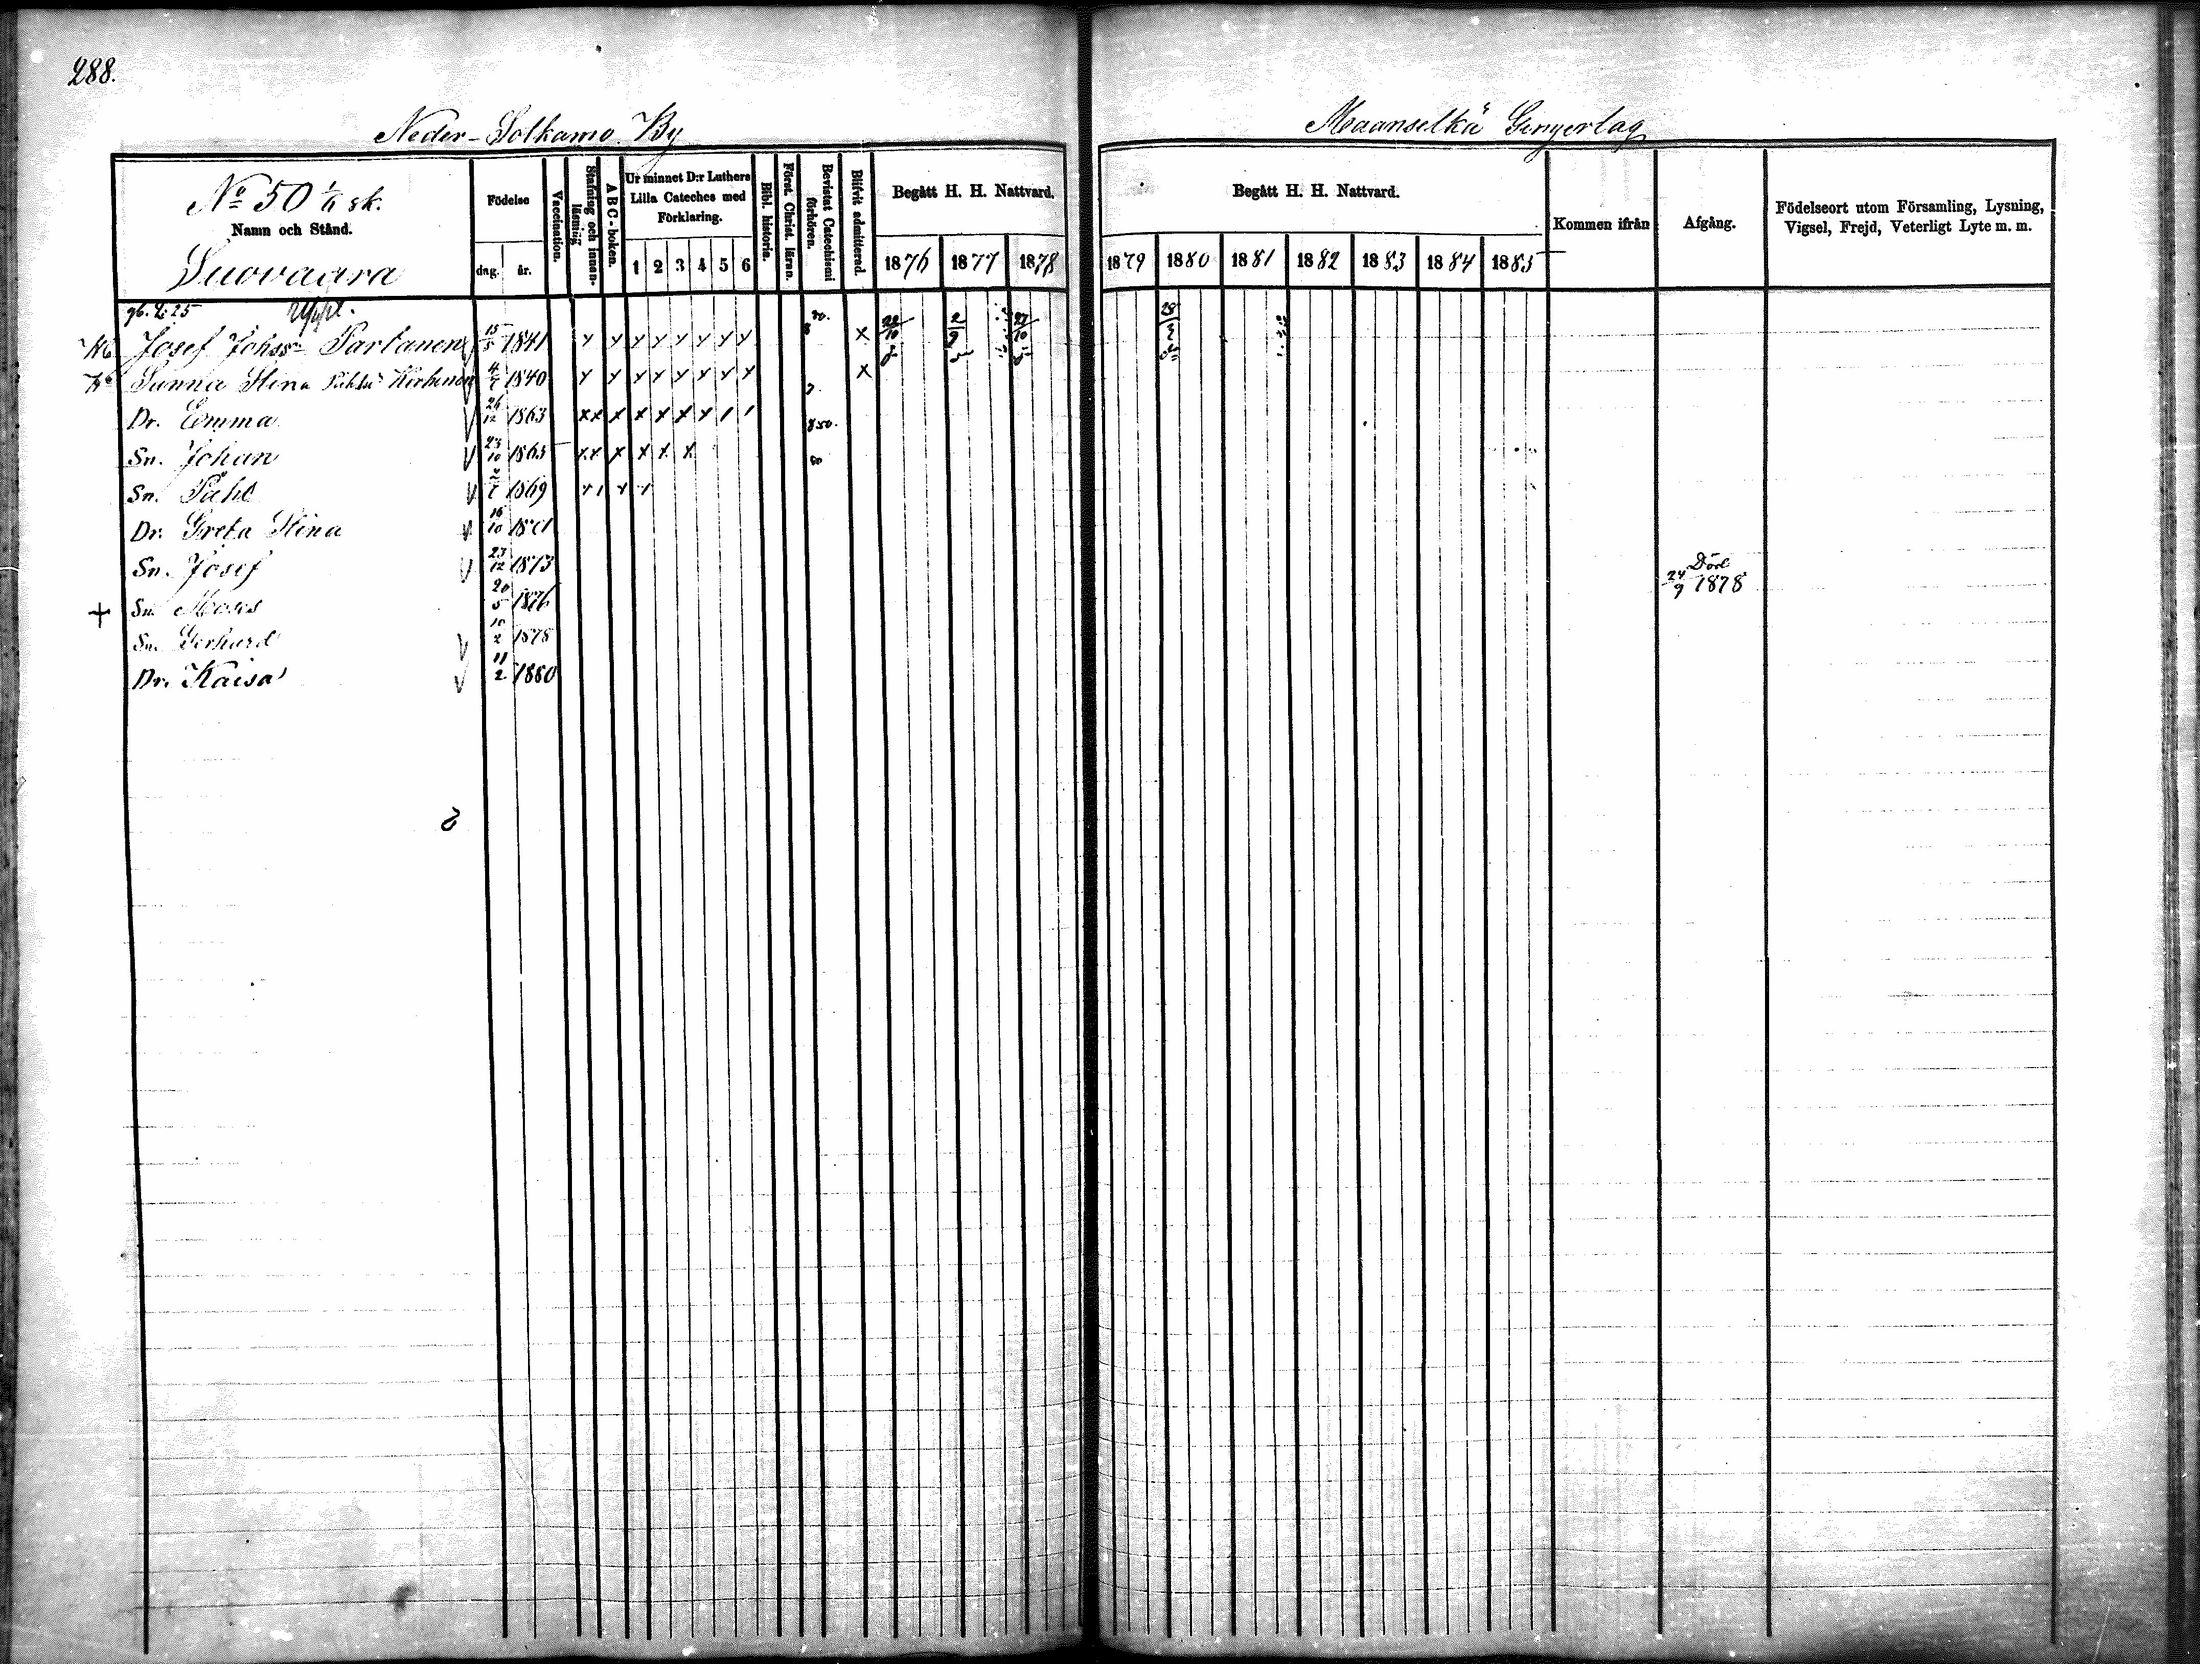 288.
Neder-Sotkamo By
Maanselkä Gingerlag
No 50 sk.
Namn och Stånd.
Suovaara
Födelse
dag. år.
Vaccination.
Stafning och innanläsning
ABC-boken.
Ur minnet D:r Luthers Lilla Cateches med Förklaring.
1 2 3 4 5 6
Bibl. historia.
Först. Christ. läran.
Bevistat Catechismi förhören.
Blifvit admitterad.
Begått H. H. Nattvard.
1876 1877 1878
Begått H. H. Nattvard.
1879 1880 1881 1882 1883 1884 1885
Kommen ifrån
Afgång.
Födelseort utom Församling, Lysning, Vigsel, Frejd, Veterligt Lyte m. m.
Josef Johss Partanen 15/5 1841 x 22/10 2/9 27/10 28/3
Sunna Stina Påhls Kerhinen 1840 x
Dr. Emma 26/12 1863
Sn. Johan 23/10 1865
Sn. Påhl 1869
Dr. Greta Stina 16/10 1871
Sn. Josef 23/12 1873
+ Sn. Moses 20/5 1876 Död 24/9 1878
Sn. Gerhard 10/2 1878
Dr. Kaisa 11/2 1880